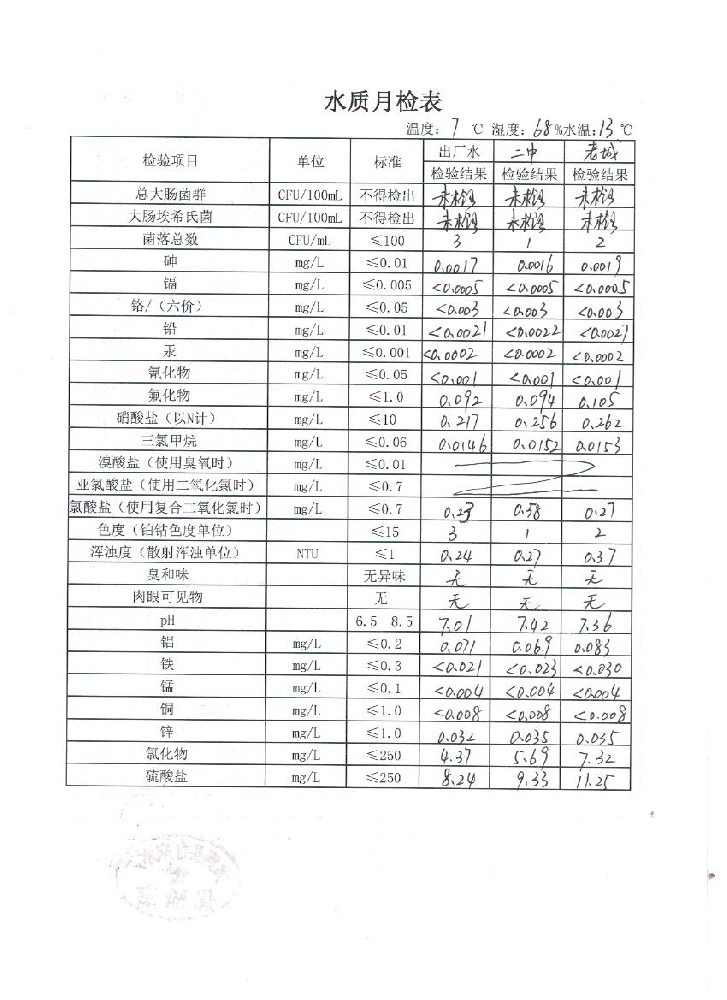 水质月检表
温度: 7 ℃ 湿度: 68 %水温: 13 ℃
检验项目 单位 标准 出厂水 二中 老城
检验结果 检验结果 检验结果
总大肠菌群 CFU/100mL 不得检出 未检出 未检出 未检出
大肠埃希氏菌 CFU/100mL 不得检出 未检出 未检出 未检出
菌落总数 CFU/mL ≤100 3 1 2
砷 mg/L ≤0.01 0.0017 0.0016 0.0019
镉 mg/L ≤0.005 <0.0005 <0.0005 <0.0005
铬/（六价） mg/L ≤0.05 <0.003 <0.003 <0.003
铅 mg/L ≤0.01 <0.0021 <0.0022 <0.0027
汞 mg/L ≤0.001 <0.0002 <0.0002 <0.0002
氰化物 mg/L ≤0.05 <0.001 <0.001 <0.001
氟化物 mg/L ≤1.0 0.092 0.094 0.105
硝酸盐（以N计） mg/L ≤10 0.217 0.256 0.262
三氯甲烷 mg/L ≤0.06 0.0146 0.0152 0.0153
溴酸盐（使用臭氧时） mg/L ≤0.01
亚氯酸盐（使用二氧化氯时） mg/L ≤0.7
氯酸盐（使用复合二氧化氯时） mg/L ≤0.7 0.23 0.38 0.27
色度（铂钴色度单位） ≤15 3 1 2
浑浊度（散射浑浊单位） NTU ≤1 0.24 0.27 0.37
臭和味 无异味 无 无 无
肉眼可见物 无 无 无 无
pH 6.5 8.5 7.01 7.42 7.36
铝 mg/L ≤0.2 0.071 0.069 0.083
铁 mg/L ≤0.3 <0.021 <0.023 <0.030
锰 mg/L ≤0.1 <0.004 <0.004 <0.004
铜 mg/L ≤1.0 <0.008 <0.008 <0.008
锌 mg/L ≤1.0 0.032 0.035 0.035
氯化物 mg/L ≤250 4.37 5.69 7.32
硫酸盐 mg/L ≤250 8.24 9.33 11.25